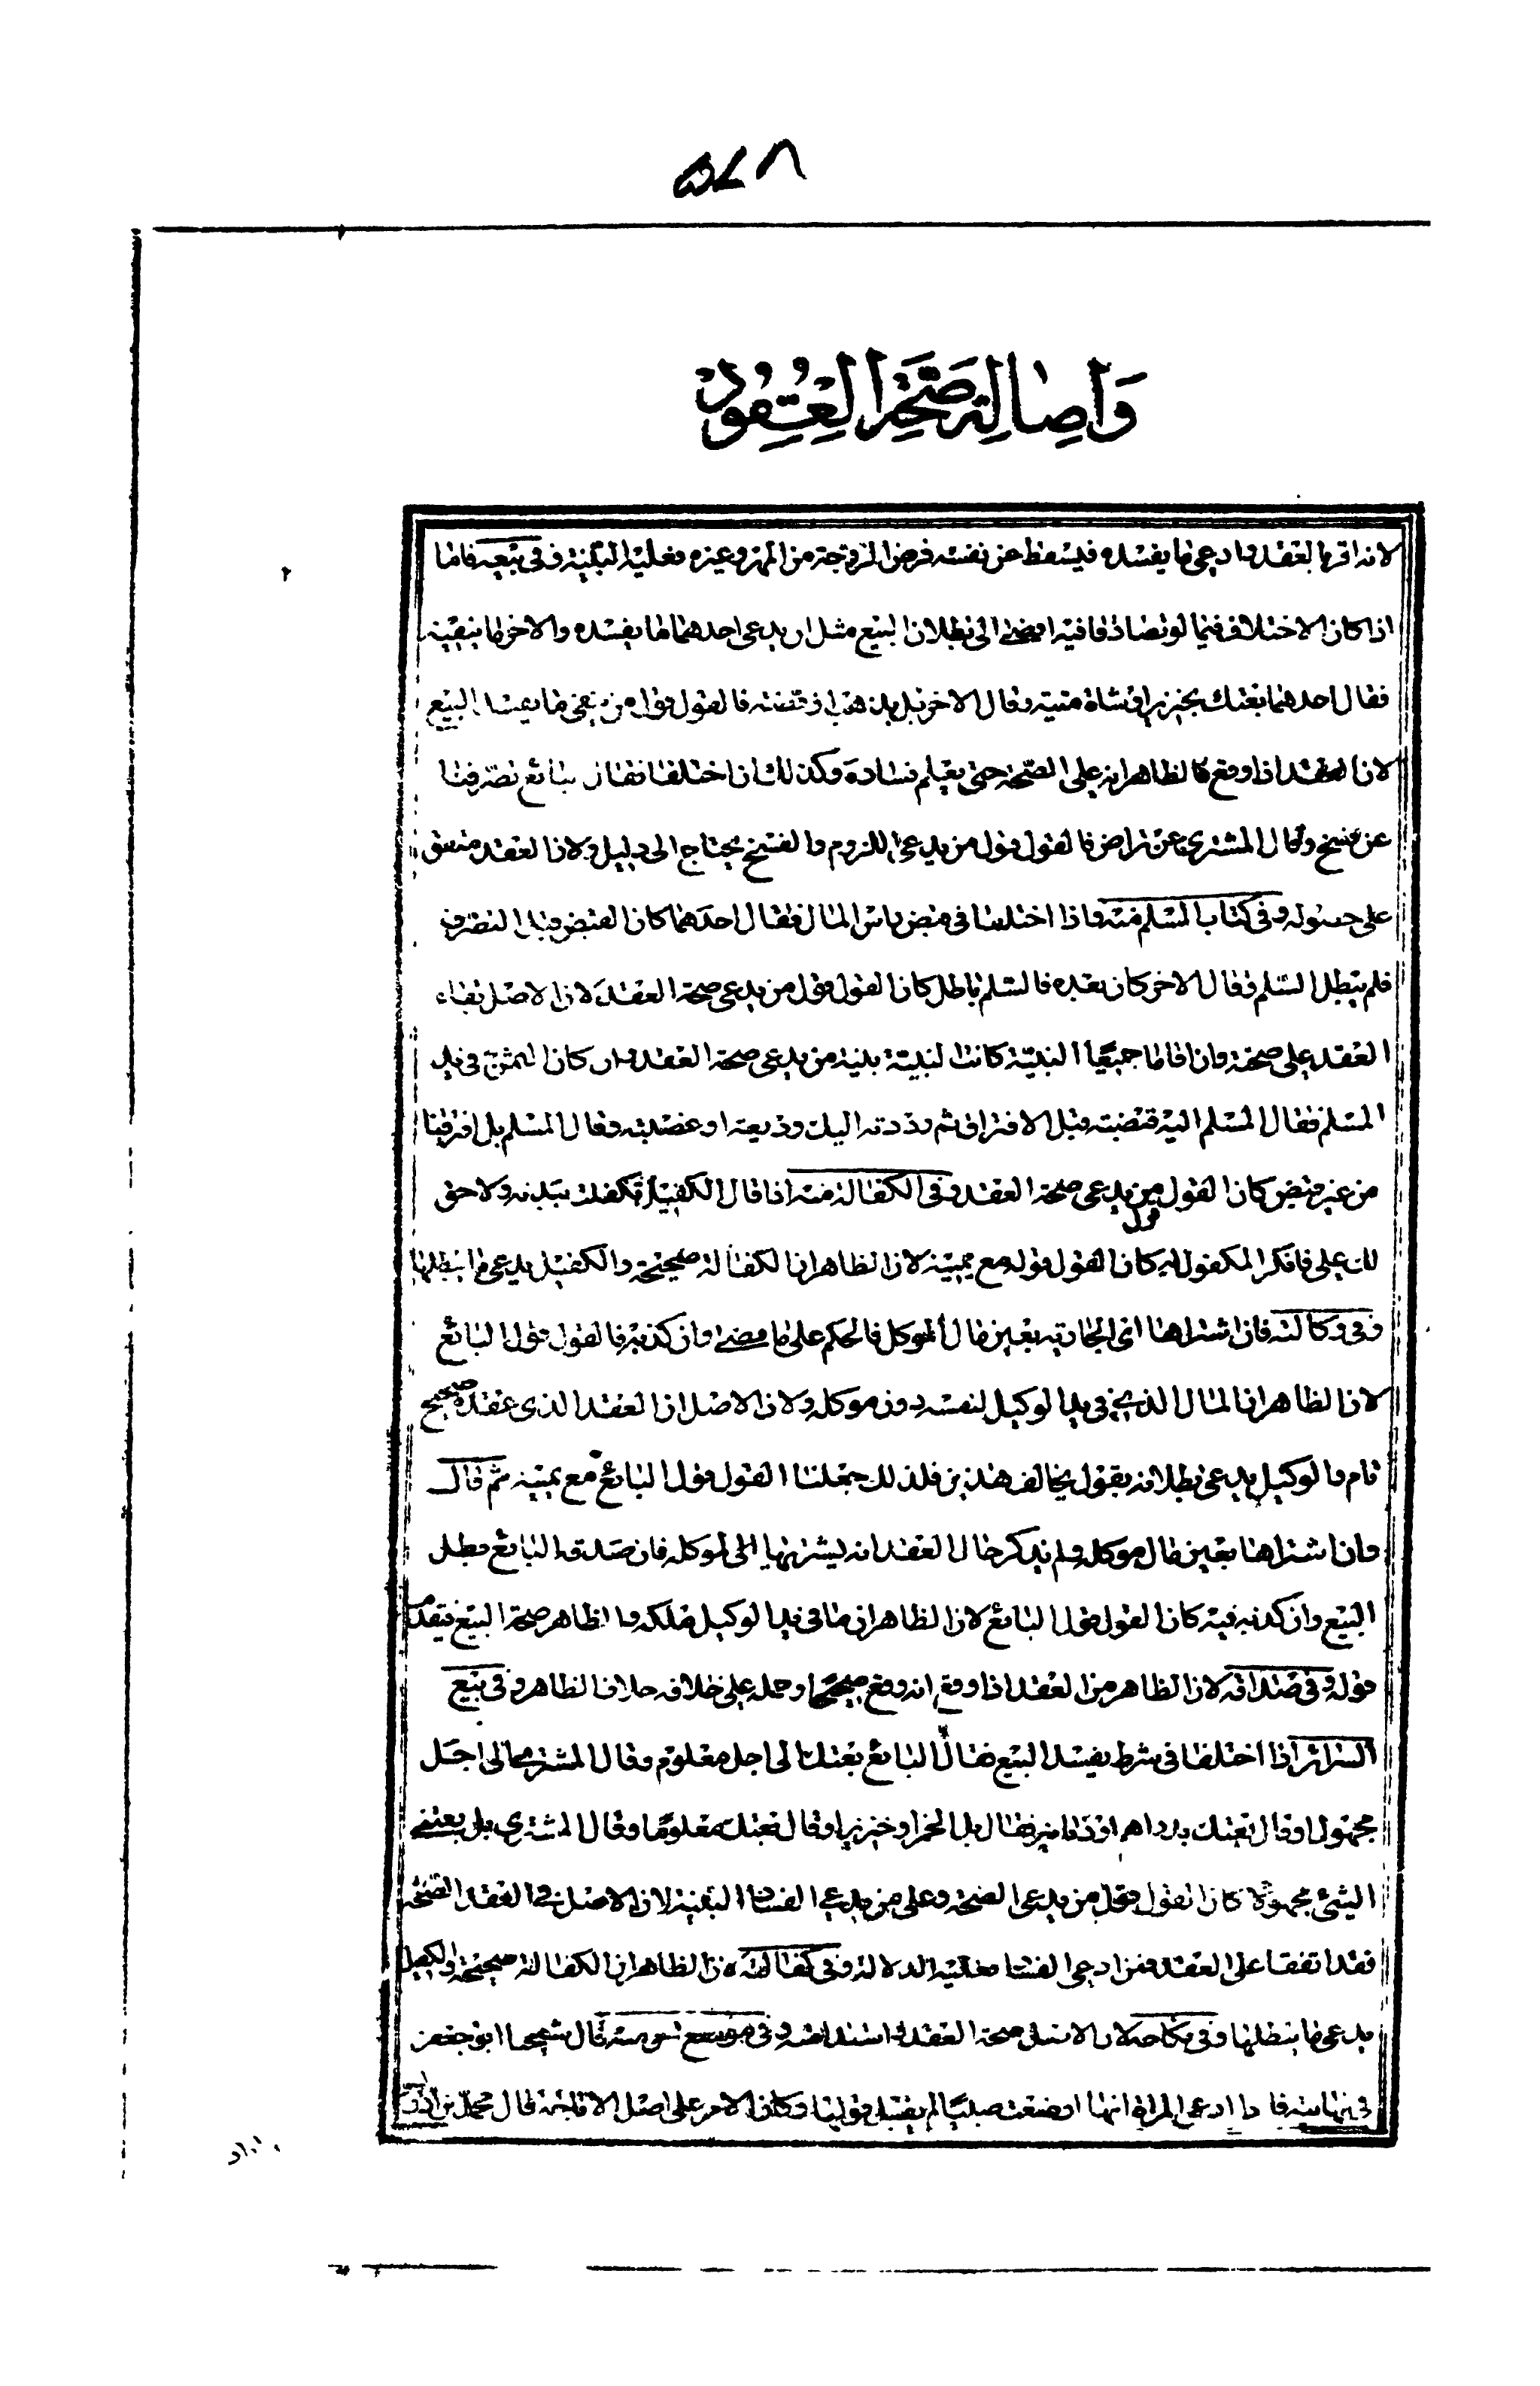 ٥٧٨
وَاصالة صحّة العقود
لانه اقر بالعقد وادعى ما يفسده فيسقط عن نفسه فرض الزوجة من المهر وغيره فعليه البينة وفي بيعه فاما
اذا كان الاختلاف فيما لو تصادقا فيه افضى الى بطلان البيع مثل ان يدعى احدهما ما يفسده والاخر ما ينفيه
فقال احدهما بعتك بخنزير او شاة ميتة وقال الاخر بل بذهب او فضة فالقول قول من ينفى ما يفسد البيع
لان العقد اذا وقع فالظاهر انه على الصحة حتى يعلم فساده وكذلك ان اختلفا فقال البائع تصرفنا
عن فسخ وقال المشترى عن تراض فالقول قول من يدعى اللزوم والفسخ يحتاج الى دليل ولان العقد متفق
على حصوله وفى كتاب السلم منه واذا اختلفا فى قبض راس المال فقال احدهما كان القبض قبل التصرف
فلم يبطل السلم وقال الاخر كان بعده فالسلم باطل كان القول قول من يدعى صحة العقد لان الاصل بقاء
العقد على صحة وان اقاما جميعا البينة كانت البينة بينة من يدعى صحة العقد وان كان الثمن فى يد
المسلم فقال المسلم اليه قبضته قبل الافتراق ثم رددته اليك وديعة او غصبته وقال المسلم بل افترقنا
من غير قبض كان القول قول من يدعى صحة العقد وفى الكفالة منه اذا قال الكفيل تكفلت ببدنه ولا حق
لك على فانكر المكفول له كان القول قوله مع يمينه لان الظاهر ان الكفالة صحيحة والكفيل يدعى ما يبطلها
وفى وكالته فان اشتراها اى الجارية بعين مال الموكل فالحكم على ما مضى وان كذبه فالقول قول البائع
لان الظاهر ان المال الذى فى يد الوكيل لنفسه دون موكله ولان الاصل ان العقد الذى عقده صحيح
تام والوكيل يدعى بطلانه بقول يخالف هذين فلذلك جعلنا القول قول البائع مع يمينه ثم قال
وان اشتراها بعين مال موكله ولم يذكر حال العقد انه يشتريها لموكله فان صدقه البائع بطل
البيع وان كذبه فيه كان القول قول البائع لان الظاهر ان ما فى يد الوكيل ملكه والظاهر صحة البيع فيقدم
قوله وفى صداقه لان الظاهر من العقد اذا وقع انه وقع صحيحا وحمله على خلافه خلاف الظاهر وفى بيع
السرائر اذا اختلفا فى شرط يفسد البيع فقال البائع بعتك الى اجل معلوم وقال المشترى الى اجل
مجهول او قال بعتك بدراهم او دنانير فقال بل بخمر او خنزير او قال بعتك معلوما وقال المشترى بل بعتنى
الشئ مجهولا كان القول قول من يدعى الصحة وعلى من يدعى الفساد البينة لان الاصل فى العقد الصحة
فقد اتفقا على العقد فمن ادعى الفساد فعليه الدلالة وفى كفالته لان الظاهر ان الكفالة صحيحة والكفيل
يدعى ما يبطلها وفى نكاحه لان الاصل صحة العقد واستدامته وفى موضع منه قال شيخنا ابو جعفر
فى نهايته فاذا ادعى المراة انها ارضعت صبيا لم يقبل قولها وكان الامر على اصل الاباحة قال محمد بن ادريس